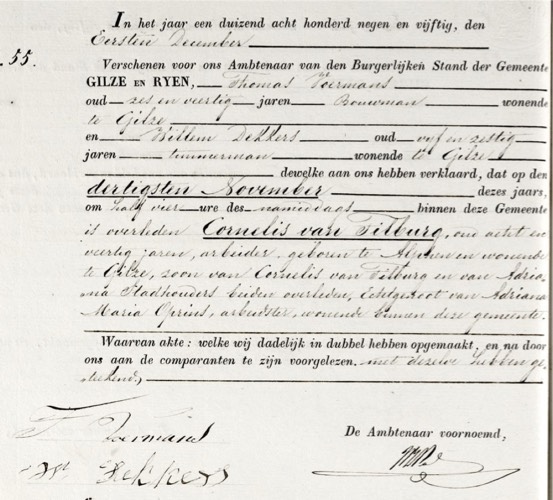 In het jaar een duizend acht honderd negen en vijftig, den
Eersten December
55.
Verschenen voor ons Ambtenaar van den Burgerlijken Stand der Gemeente
GILZE EN RYEN, Thomas Voermans
oud zes en veertig jaren Bouwman wonende
te Gilze
en Willem Dekkers oud vijf en zestig
jaren timmerman wonende te Gilze
dewelke aan ons hebben verklaard, dat op den
dertigsten November dezes jaars,
om half vier ure des namiddags binnen deze Gemeente
is overleden Cornelis van Tilburg, oud acht en
veertig jaren, arbeider, geboren te Alphen en wonende
te Gilze, zoon van Cornelis van Tilburg en van Adria-
na Stadhouders beiden overleden, Echtgenoot van Adriana
Maria Oprins, arbeidster, wonende binnen deze gemeente.
Waarvan akte: welke wij dadelijk in dubbel hebben opgemaakt, en na door
ons aan de comparanten te zijn voorgelezen. met dezelve hebben ge-
teekend,
De Ambtenaar voornoemd,
T Voermans
W Dekkers